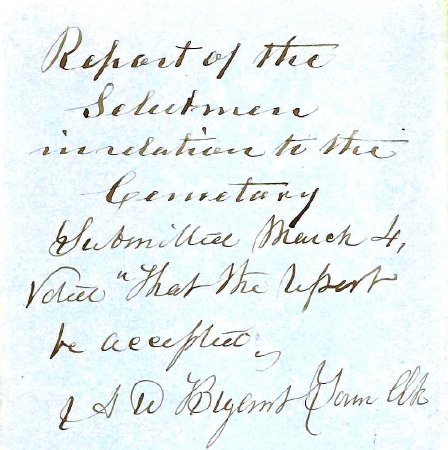 Report of the
Selectmen
in relation to the
Cemetary
Submitted March 4,
Voted "That the report
be accepted,
S D Town Clk